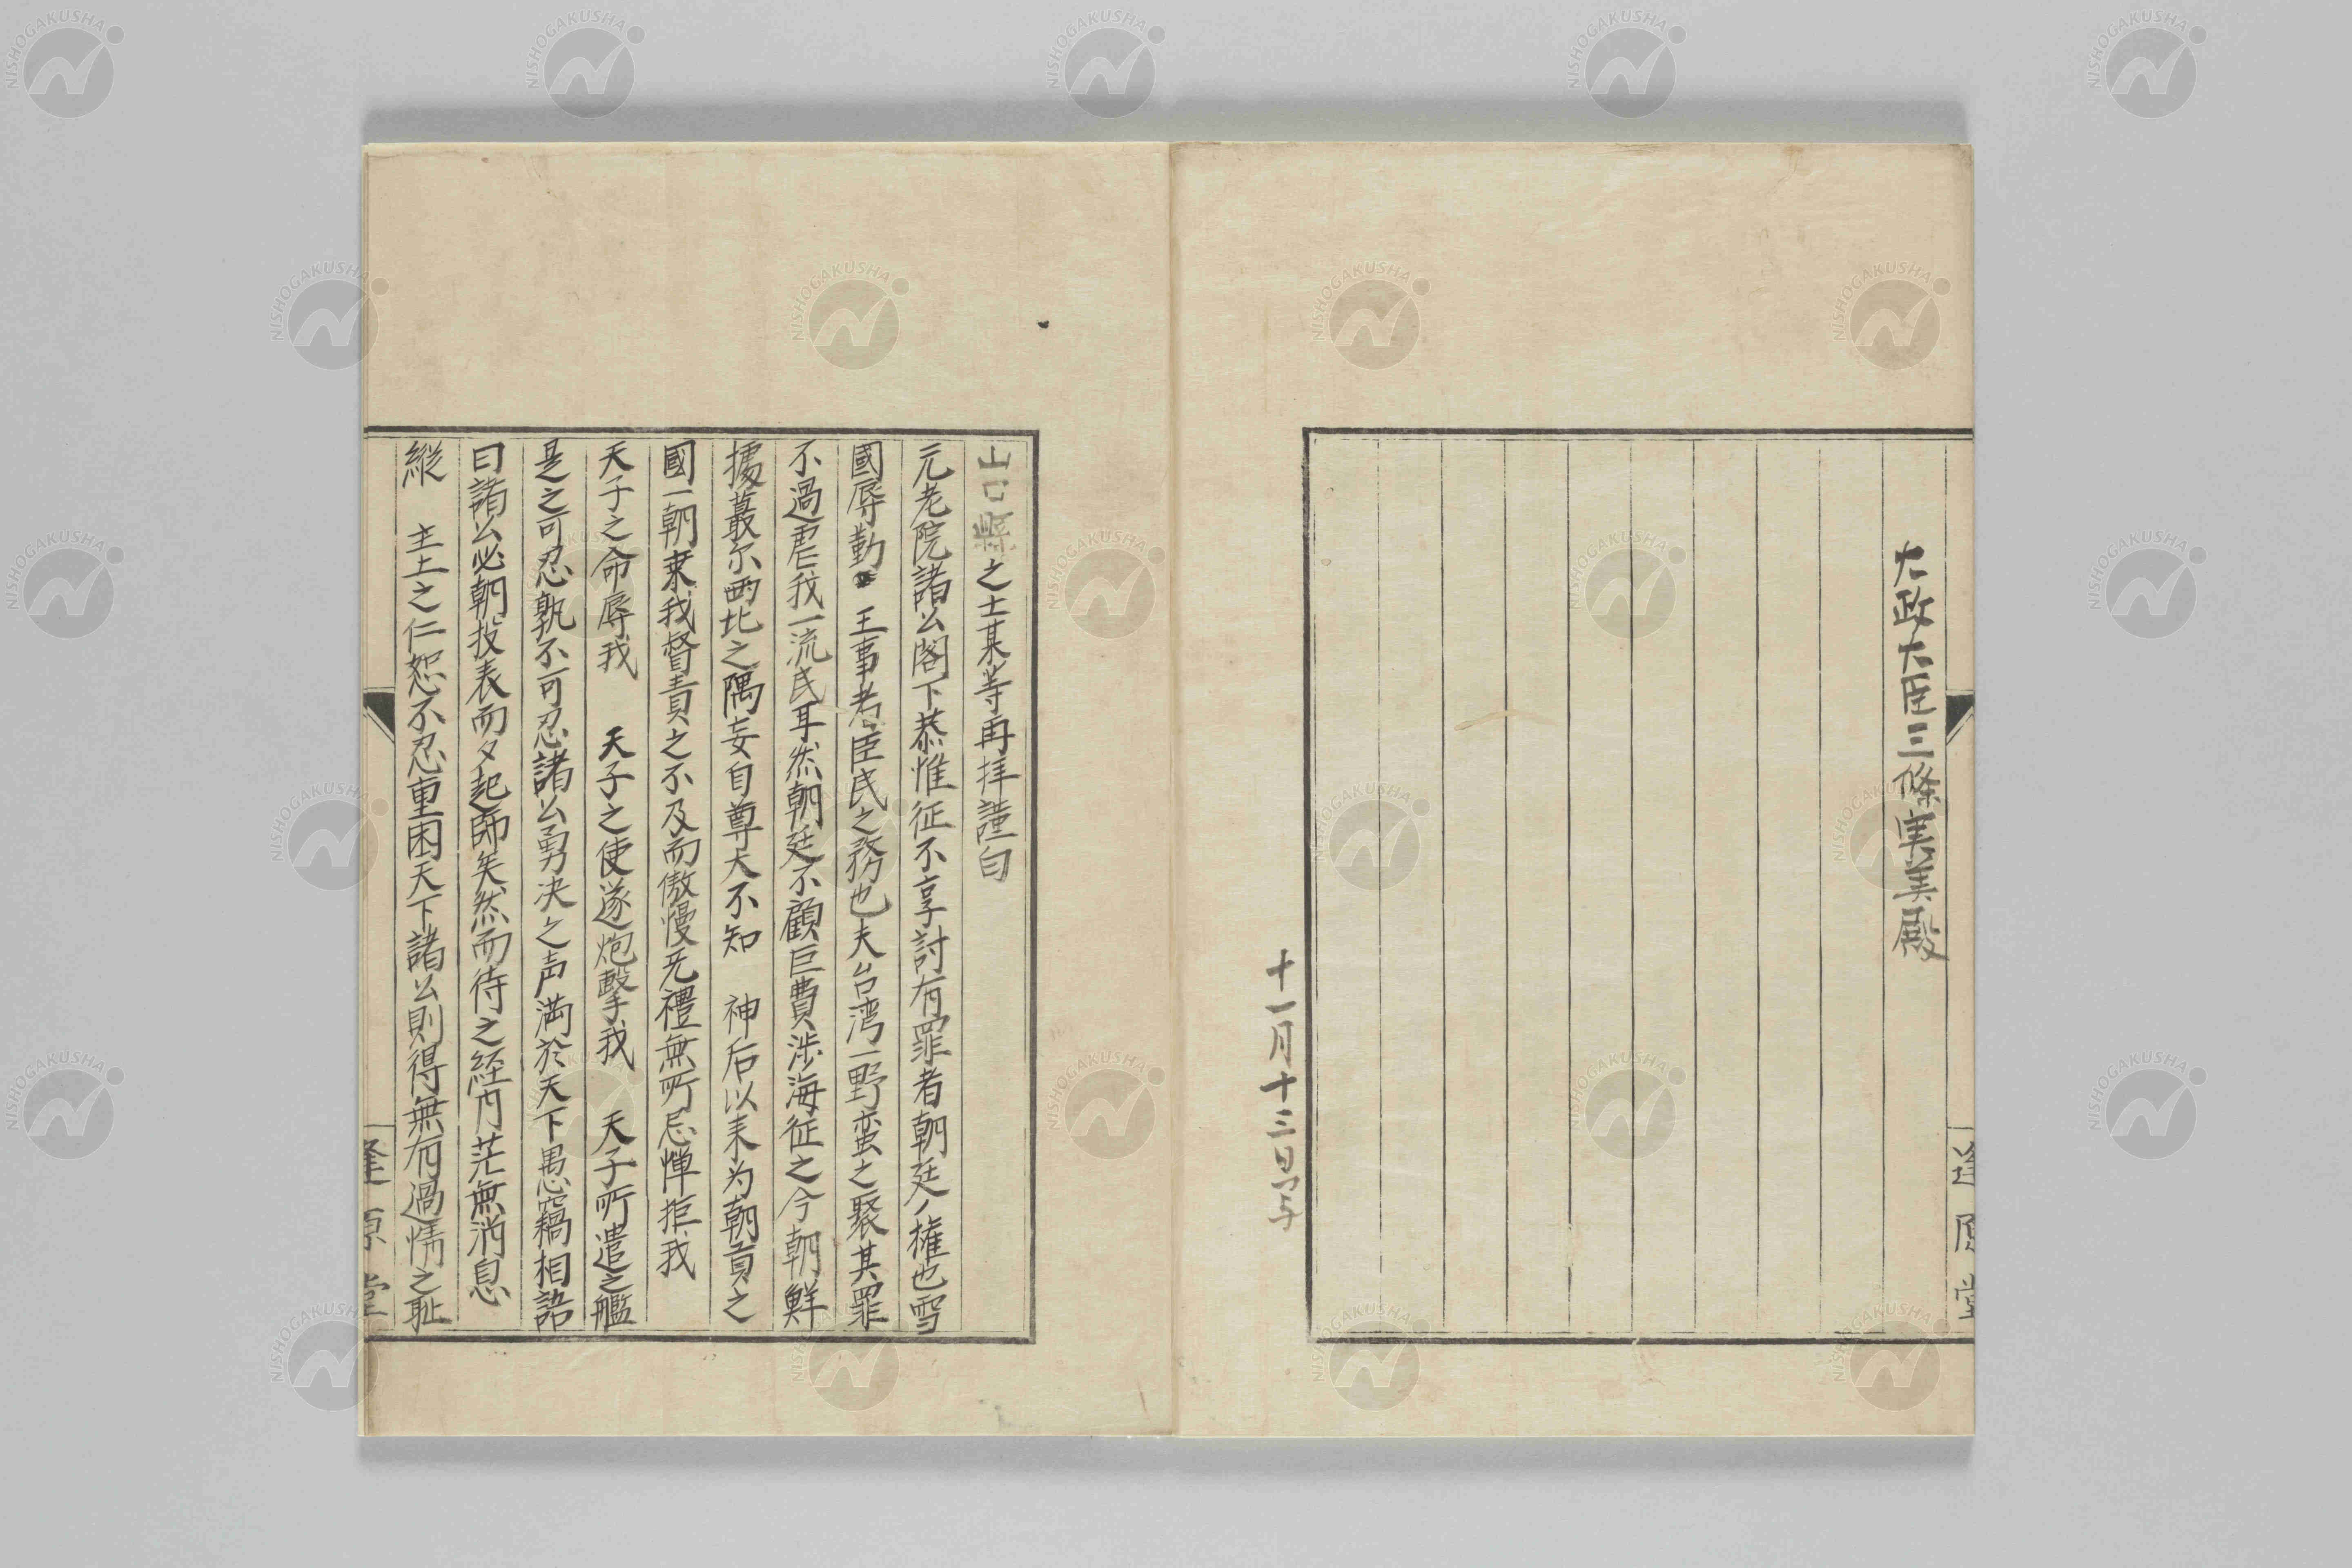 太政大臣三條実美殿
逢原堂
十一月十三日写
山口縣之士某等再拝謹白
元老院諸公閣下恭惟征不享討有罪者朝廷ノ権也雪
國辱勤 王事者臣民之務也夫台湾一野蛮之聚其罪
不過虐我一流民耳然朝廷不顧巨費渉海征之今朝鮮
據蕞尓西北之隅妄自尊大不知 神后以来为朝貢之
國一朝来我督責之不及而傲慢无禮無所忌憚拒我
天子之命辱我 天子之使遂炮撃我 天子所遣之艦
是之可忍孰不可忍諸公勇决之声満於天下愚竊相語
曰諸公必朝投表而夕起師矣然而待之経月茫無消息
縦 主上之仁恕不忍重困天下諸公則得無有過情之耻
逢原堂
NISHOGAKUSHA